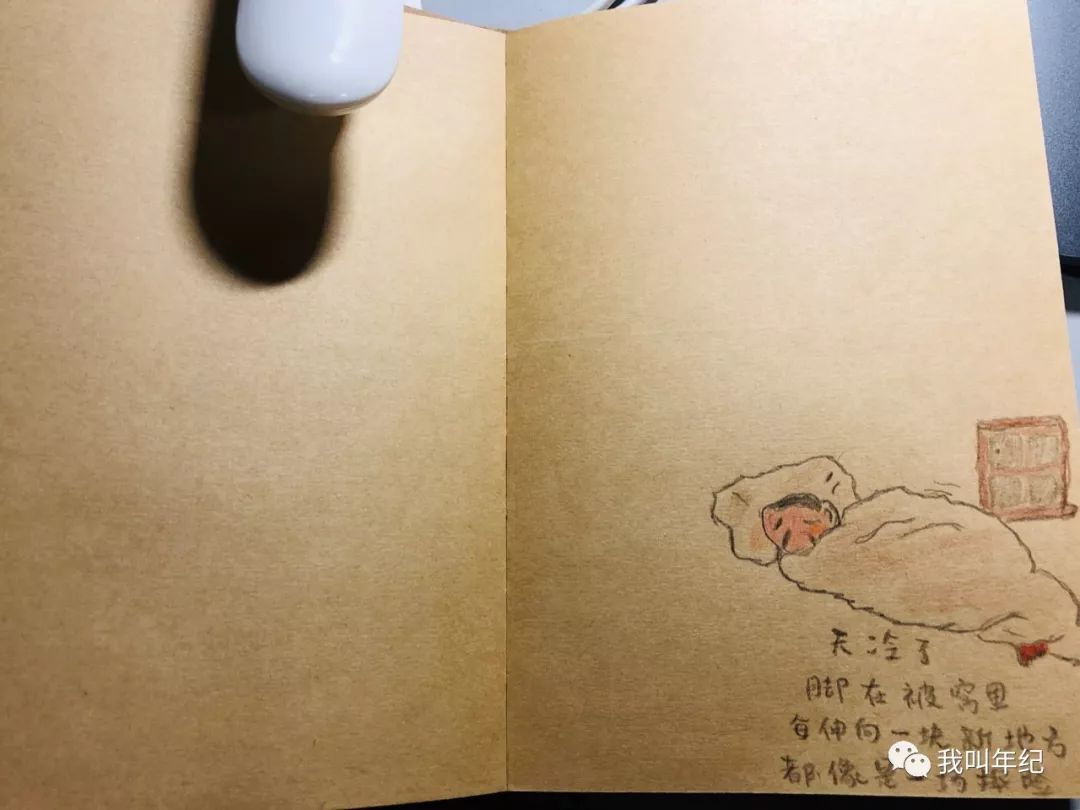 天冷了
脚在被窝里
每伸向一块新地方
都像是一场探险
我叫年纪